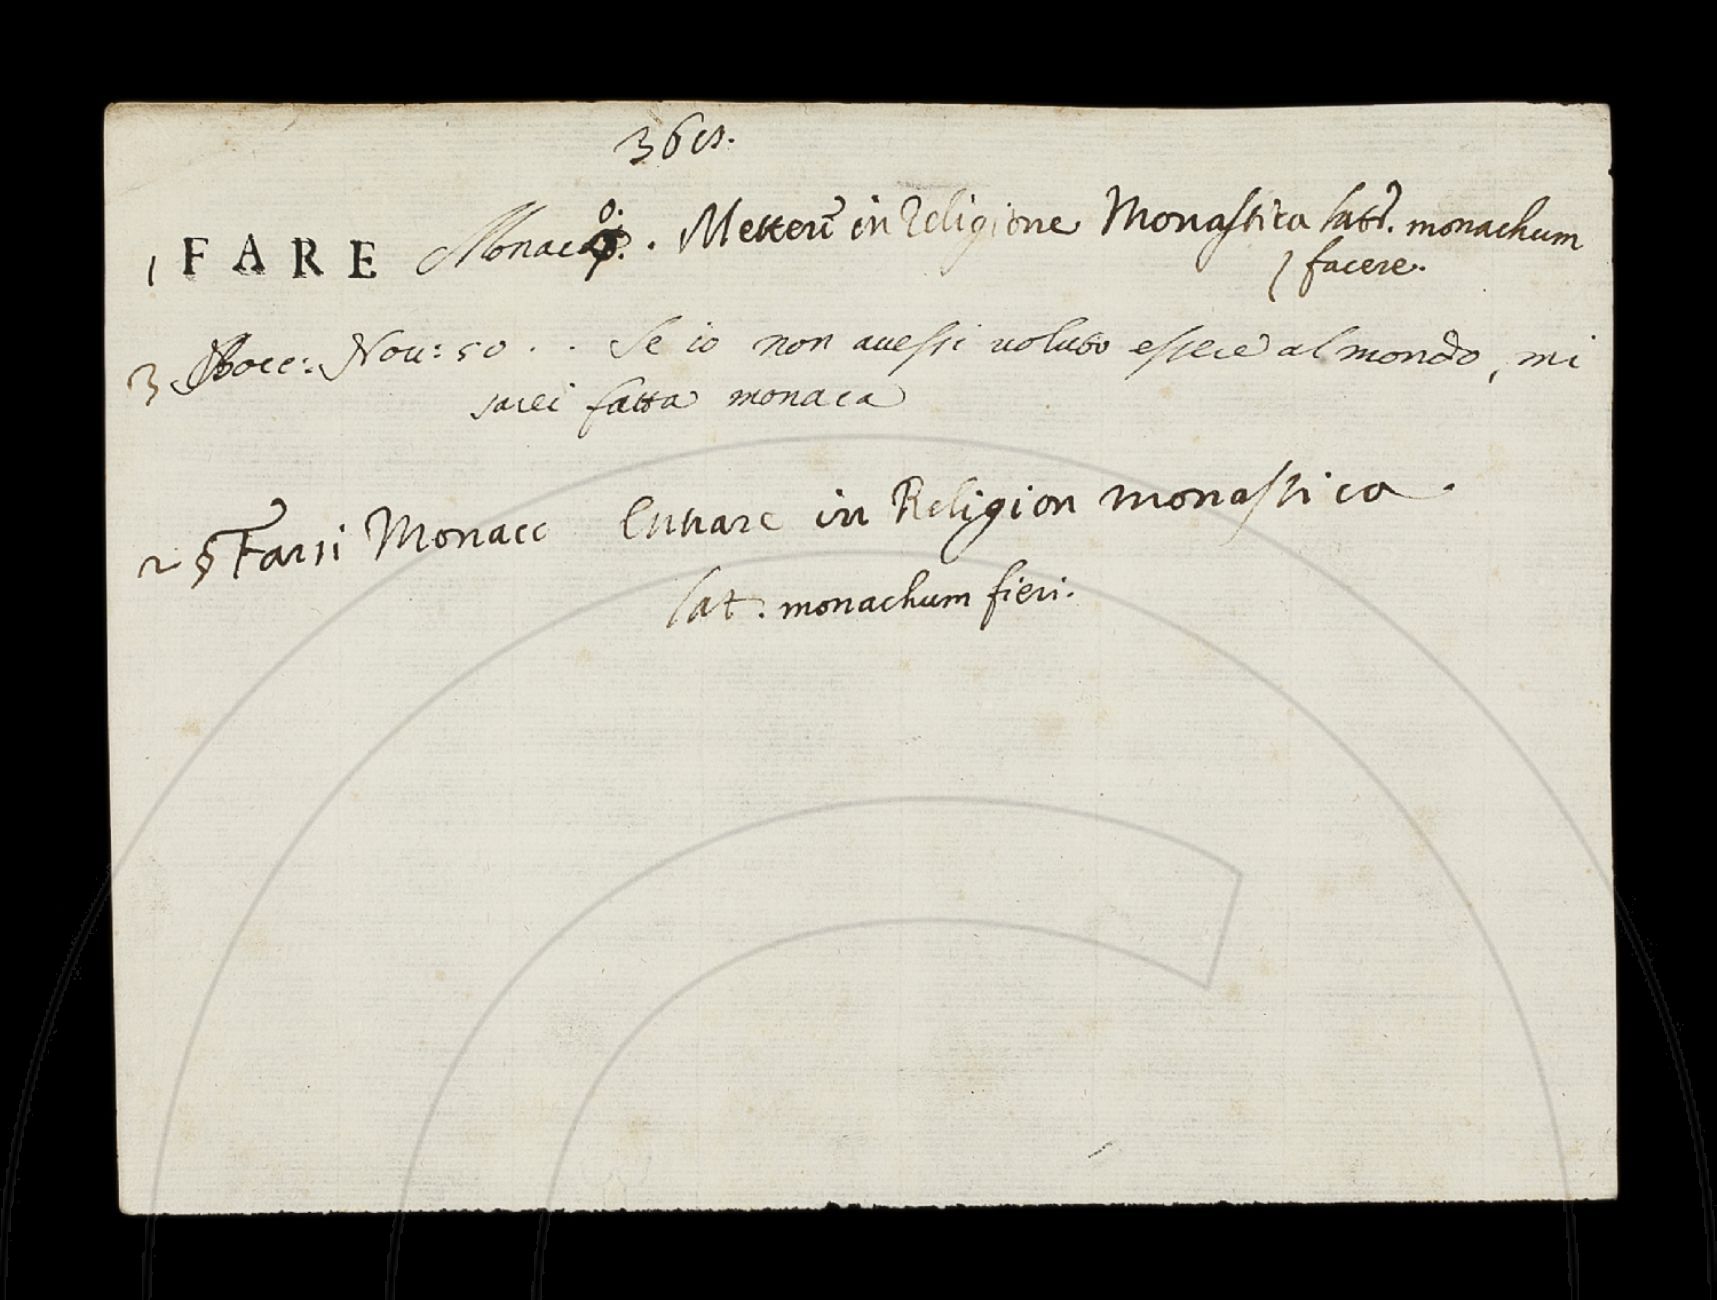 1 FARE Monaco. Metter in Religione Monastica lat. monachum
facere.
3 Bocc: Nou: 50 . . Se io non auessi voluto essere al mondo, mi
sarei fatta monaca
2 § Farsi Monaco Entrare in Religion monastica.
lat. monachum fieri.